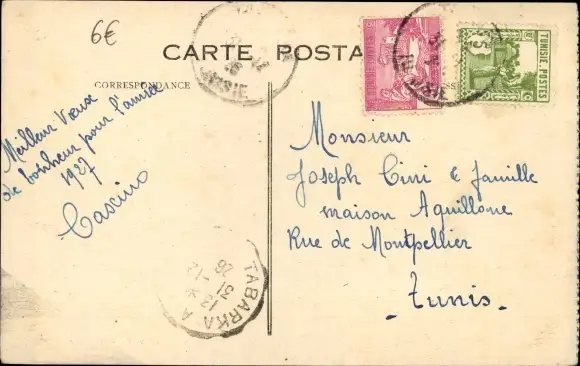 6€
CARTE POSTA
CORRESPONDANCE
Meilleur Vœux
de bonheur pour l'année
1927
Cascino
TUNISIE POSTES
5
Monsieur
Joseph Cini & famille
maison Aquillone
Rue de Montpellier
- Tunis -
TABARKA A
31 - 12
26